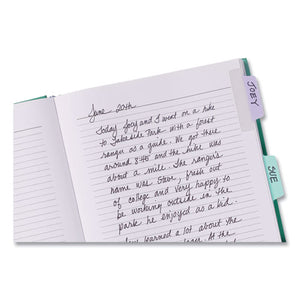 June 20th
Today Joey and I went on a hike
to Lakeside Park with a forest
ranger as a guide. We got there
around 8:45 and the hike was
about a mile. The rangers
name was Steve, fresh out
of college and very happy to
be working outside in the
park he enjoyed as a kid.
learned a lot about the
JOEY
SUE